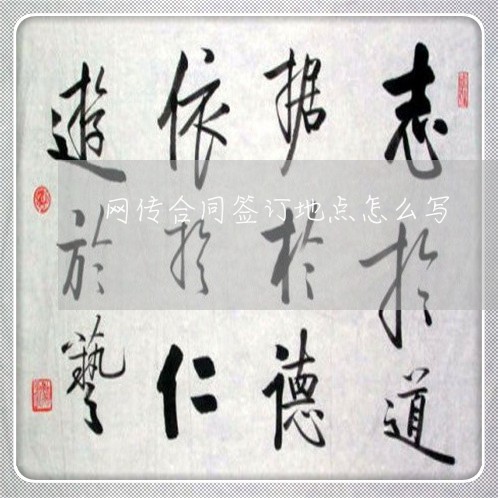 志於道
据於德
依於仁
遊於藝
网传合同签订地点怎么写